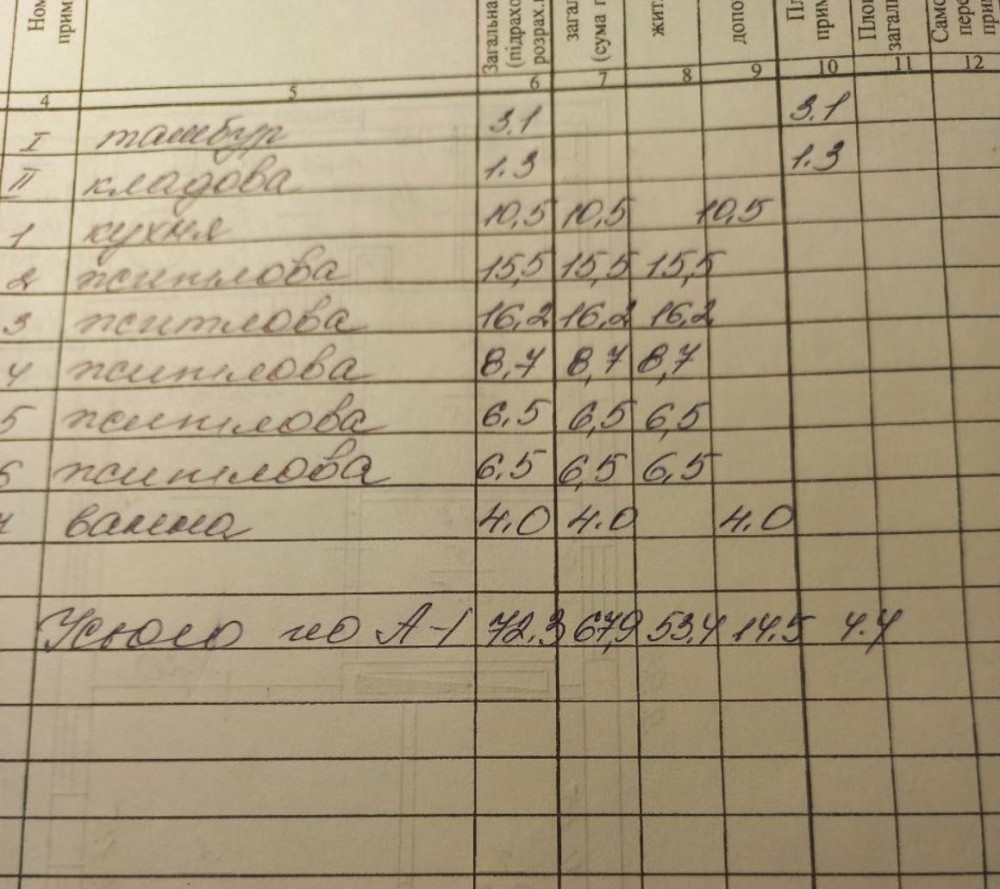 Ном
прим
Загальна
(підрахо
розрах.п
загал
(сума г
жит
допо
Пл
прим
Пло
загалі
Само
пере
прим
4 5 6 7 8 9 10 11 12
I тамбур 3.1 3.1
II кладова 1.3 1.3
1 кухня 10,5 10,5 10,5
2 житлова 15,5 15,5 15,5
3 житлова 16,2 16,2 16,2
4 житлова 8,7 8,7 8,7
5 житлова 6,5 6,5 6,5
6 житлова 6,5 6,5 6,5
7 ванна 4.0 4.0 4.0
Усього по А-1 72,3 67,9 53,4 14,5 4.4